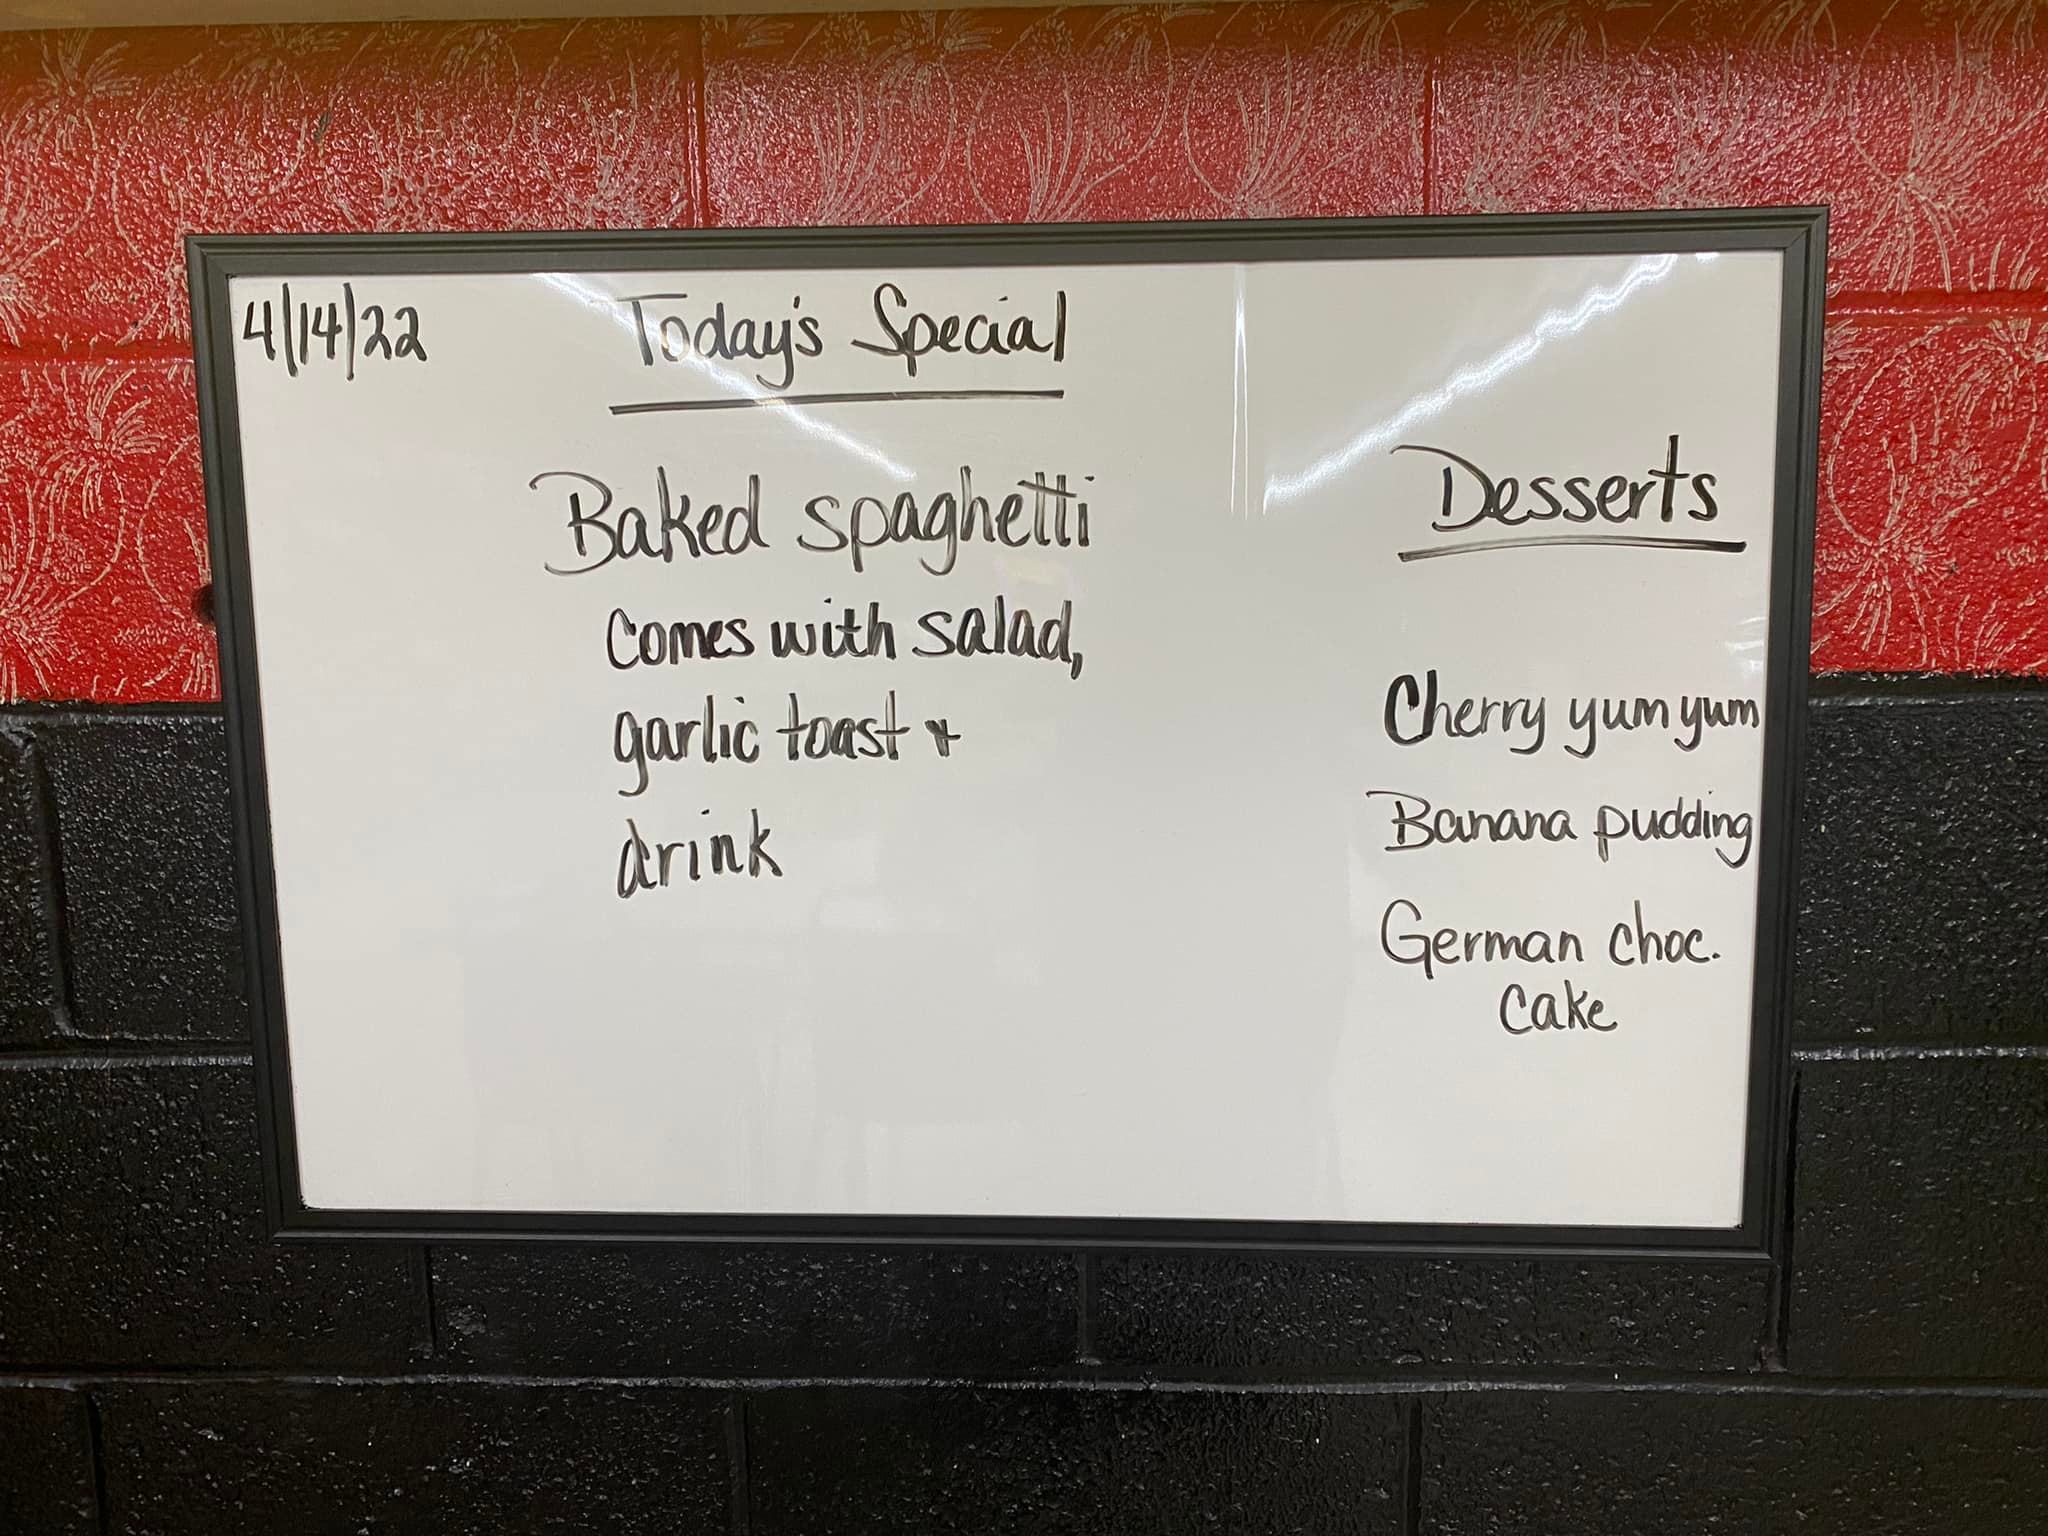 4/14/22
Today's Special
Baked spaghetti
comes with salad,
garlic toast &
drink
Desserts
Cherry yum yum
Banana pudding
German choc.
cake